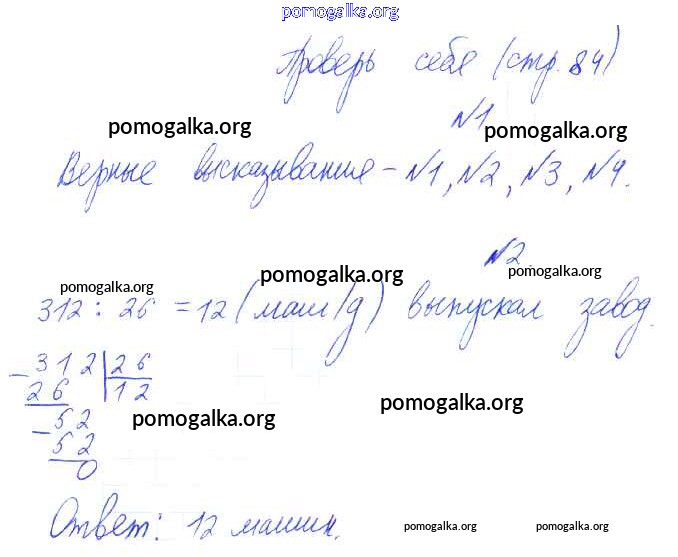 pomogalka.org
Проверь себя (стр. 84)
№1
pomogalka.org pomogalka.org
Верные высказывания – №1, №2, №3, №4.
№2
pomogalka.org pomogalka.org pomogalka.org
312 : 26 = 12 (маш/д) выпускал завод.
– 312 | 26
26 | 12
pomogalka.org pomogalka.org
– 52
52
0
Ответ: 12 машин.
pomogalka.org pomogalka.org